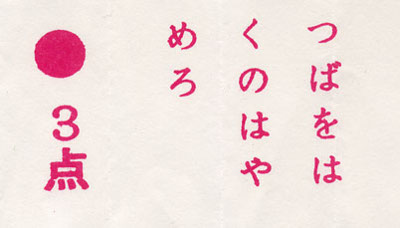 つばをは
くのはや
めろ
●3点